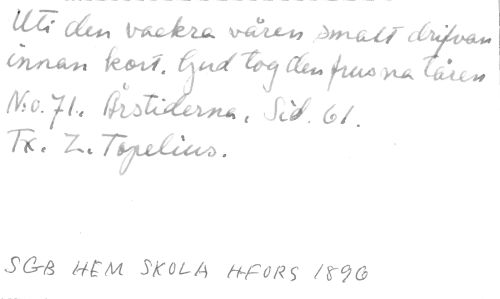 Uti den vackra våren smalt drifvan
innan kort. Gud tog den frusna tåren
N:o. 71. Årstiderna. Sid. 61.
Tx. Z. Topelius.
SGB HEM SKOLA HFORS 1896